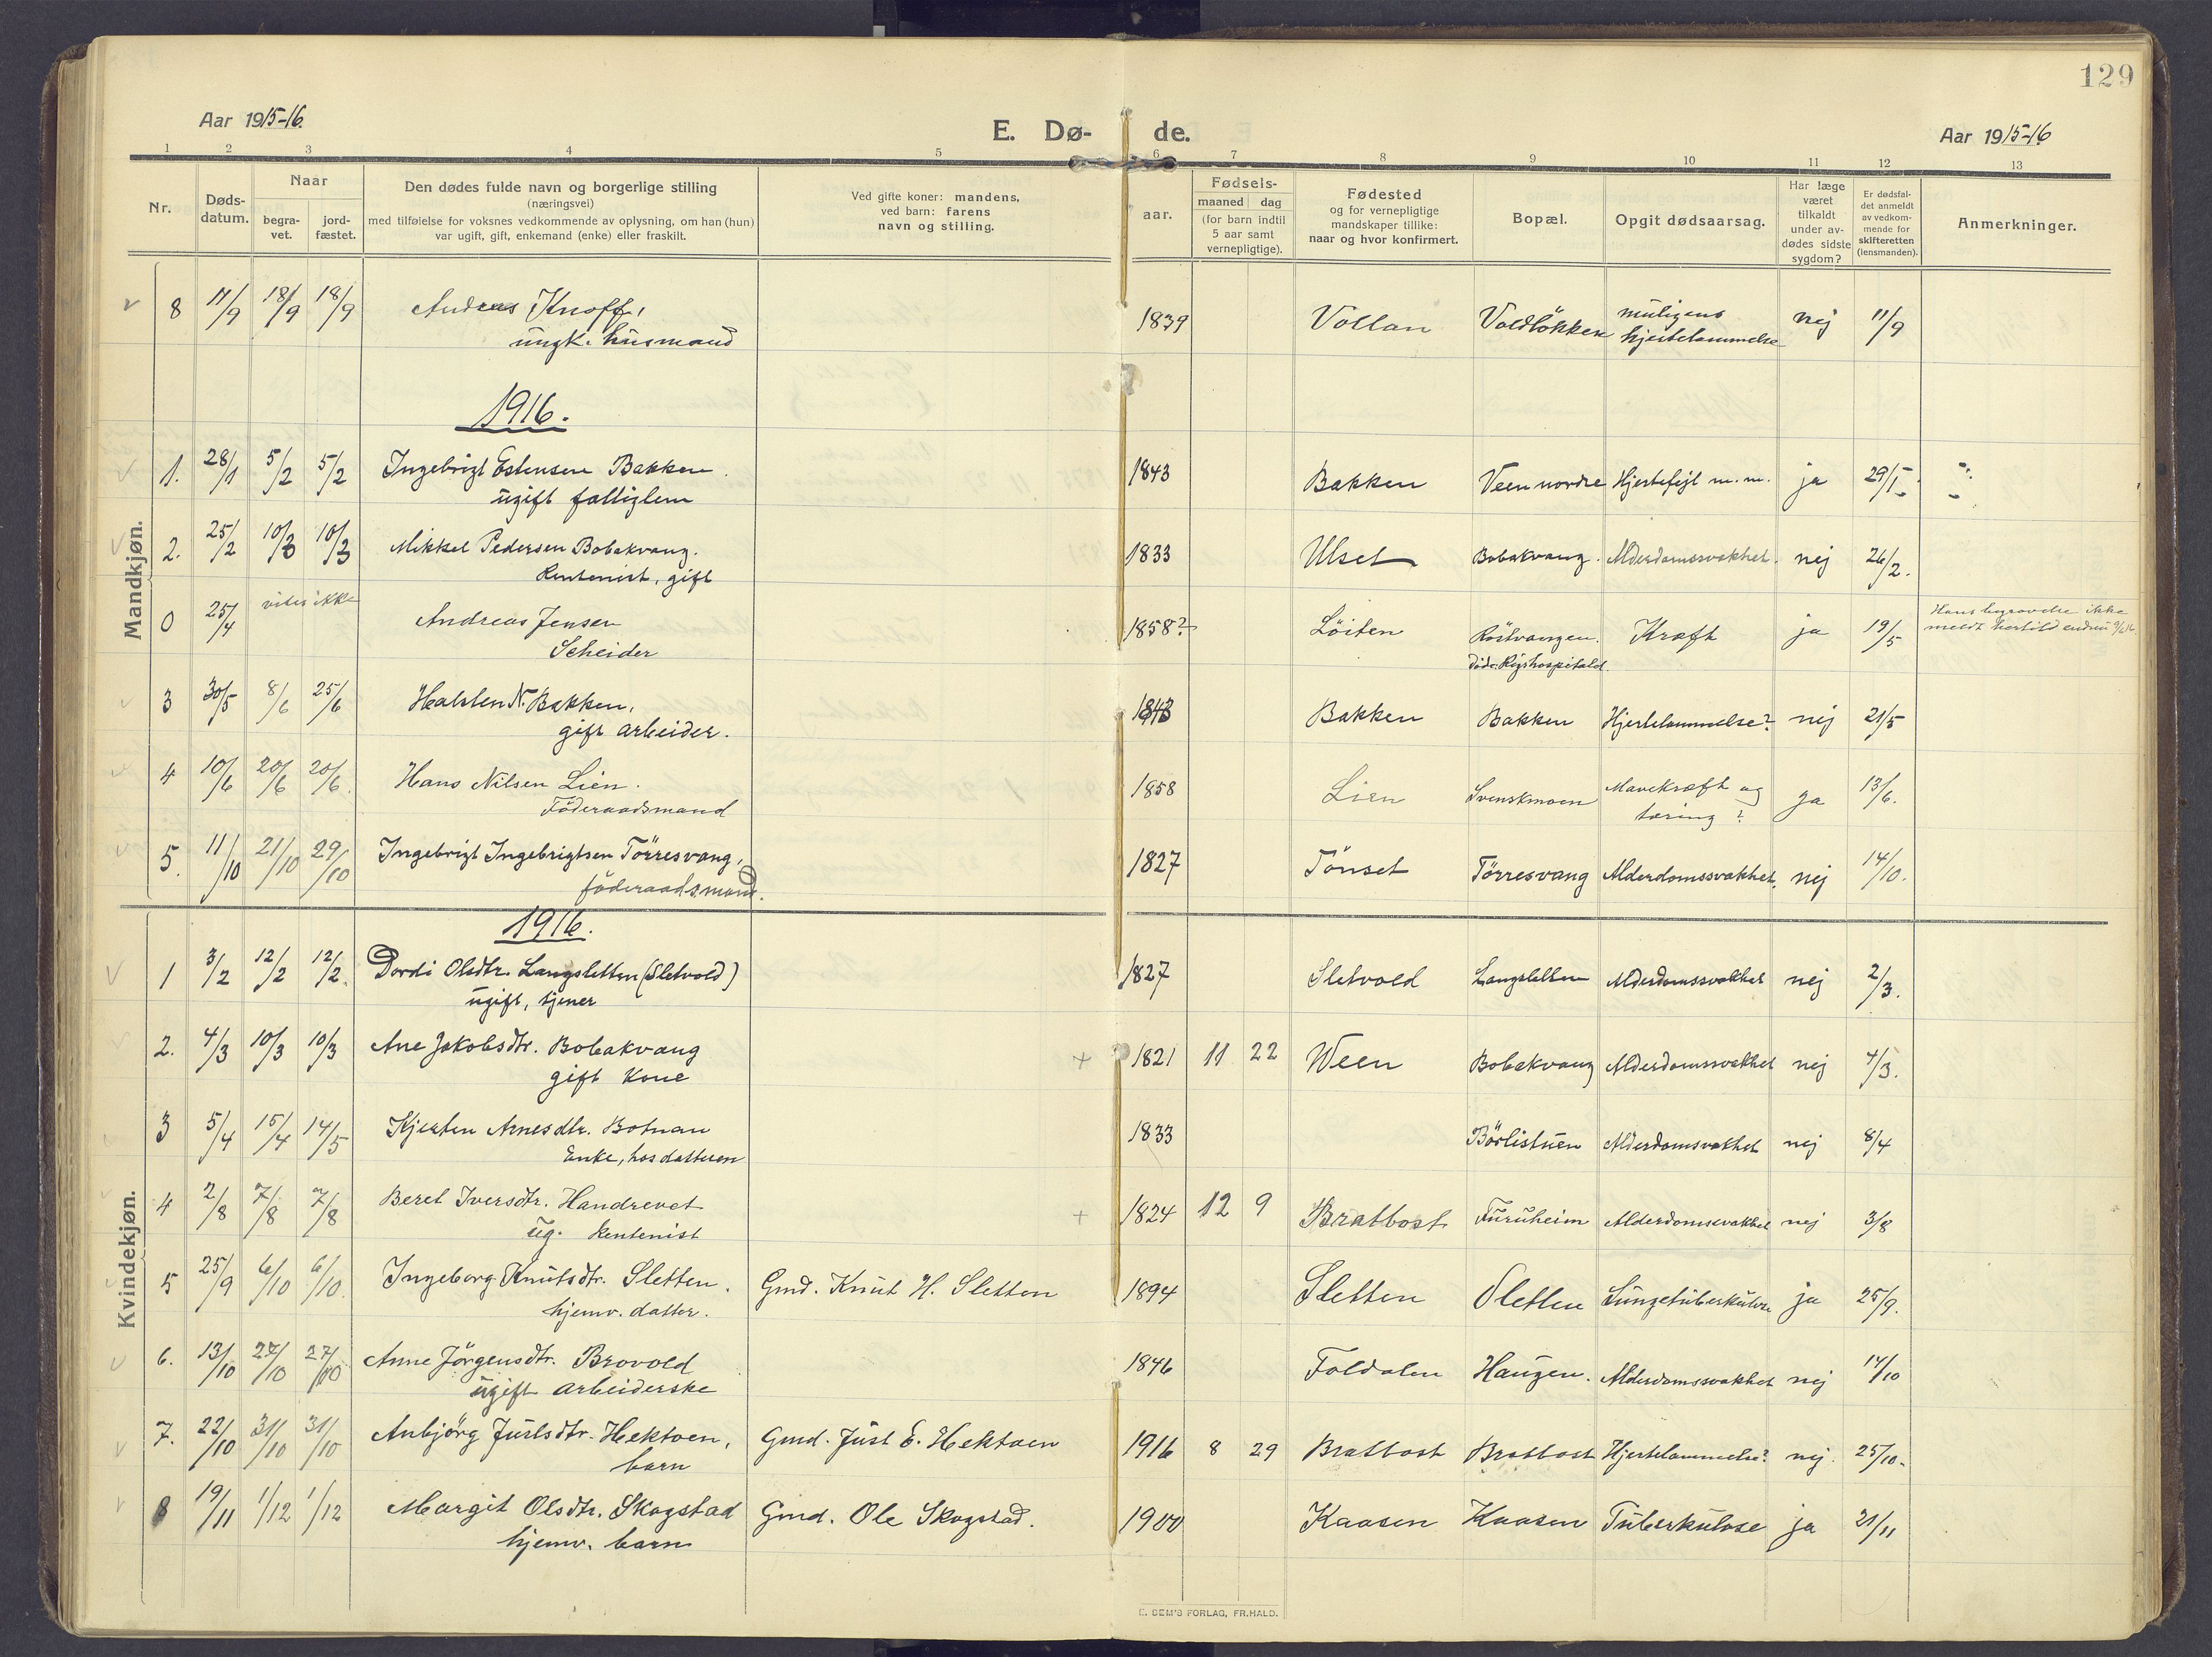 129
Aar 1915-16.
E. Dø- de.
Aar 1915-16
1 2 3 4 5 6 7 8 9 10 11 12 13
Nr.
Døds-
datum.
Naar
begra-
vet.
jord-
fæstet.
Den dødes fulde navn og borgerlige stilling
(næringsvei)
med tilføielse for voksnes vedkommende av oplysning, om han (hun)
var ugift, gift, enkemand (enke) eller fraskilt.
Ved gifte koner: mandens,
ved barn: farens
navn og stilling.
aar.
Fødsels-
maaned dag
(for barn indtil
5 aar samt
vernepligtige).
Fødested
og for vernepligtige
mandskaper tillike:
naar og hvor konfirmert.
Bopæl.
Opgit dødsaarsag.
Har læge
været
tilkaldt
under av-
dødes sidste
sygdom?
Er dødsfal-
det anmeldt
av vedkom-
mende for
skifteretten
(lensmanden).
Anmerkninger.
Mandkjøn.
8 11/9 18/9 18/9 Andreas Knoff, 1839 Vollan Voldløkken muligens nej 11/9
ungk. husmand hjertelammelse
1916.
1. 28/1 5/2 5/2 Ingebrigt Estensen Bakken. 1843 Bakken Veen nordre Hjertefejl m.m. ja 29/1
ugift fattiglem
2. 25/2 10/3 10/3 Mikkel Pedersen Bobakvang. 1833 Ulset Bobakvang. Alderdomssvakhet. nej 26/2.
Rentenist, gift
0 25/4 vites ikke Andreas Jensen 1858? Löiten Röstvangen. Kræft ja 19/5 Hans begravelse ikke
Scheider döde: Rigshospitalet. meldt hertil endnu
3 30/5 8/6 25/6 Halsten N. Bakken, 1843 Bakken Bakken Hjertelammelse? nej 21/5
gift arbeider.
4 10/6 20/6 20/6. Hans Nilsen Lien. 1858 Lien Svenskmoen Mavekræft og ja 13/6.
Föderaadsmand tæring?
5. 11/10 21/10 29/10 Ingebrigt Ingebrigtsen Törresvang, 1827 Tönset Törresvang Alderdomssvakhet. nej 14/10.
föderaadsmand.
Kvindekjøn.
1916.
1 3/2 12/2 12/2. Dordi Olsdtr. Langsletten (Sletvold) 1827 Sletvold Langsletten Alderdomssvakhet nej 2/3.
ugift, tjener
2. 4/3 10/3 10/3 Ane Jakobsdtr. Bobakvang + 1821 11 22 Ween Bobakvang Alderdomssvakhet nej 4/3.
gift kone
3 5/4 15/4 14/5 Kjersten Arnesdtr. Botnan 1833 Börlistuen Alderdomsvakhet nej 8/4
Enke, hos datteren
4 2/8 7/8 7/8 Beret Iversdtr. Handrevet + 1824 12 9 Brattost Furuheim Alderdomsvakhet nej 3/8
ug. Rentenist
5 25/9 6/10 6/10. Ingeborg Knutsdtr. Sletten. Gmd. Knut H. Sletten 1894 Sletten Sletten Lungetuberkulose ja 25/9.
hjemv. datter.
6. 13/10 27/10 27/10 Anne Jörgensdtr. Brovold 1846 Foldalen Haugen. Alderdomssvakhet nej 14/10
ugift arbeiderske
7. 22/10 31/10 31/10 Anbjörg Justsdtr. Hektoen, Gmd. Just E. Hektoen 1916 8 29 Brattost Brattost Hjertelammelse? nej. 25/10.
barn
8 19/11 1/12 1/12 Margit Olsdtr. Skogstad Gmd. Ole Skogstad. 1900 Kaasen Kaasen Tuberkulose ja 21/11
hjemv. barn
E. SEM'S FORLAG, FR.HALD.